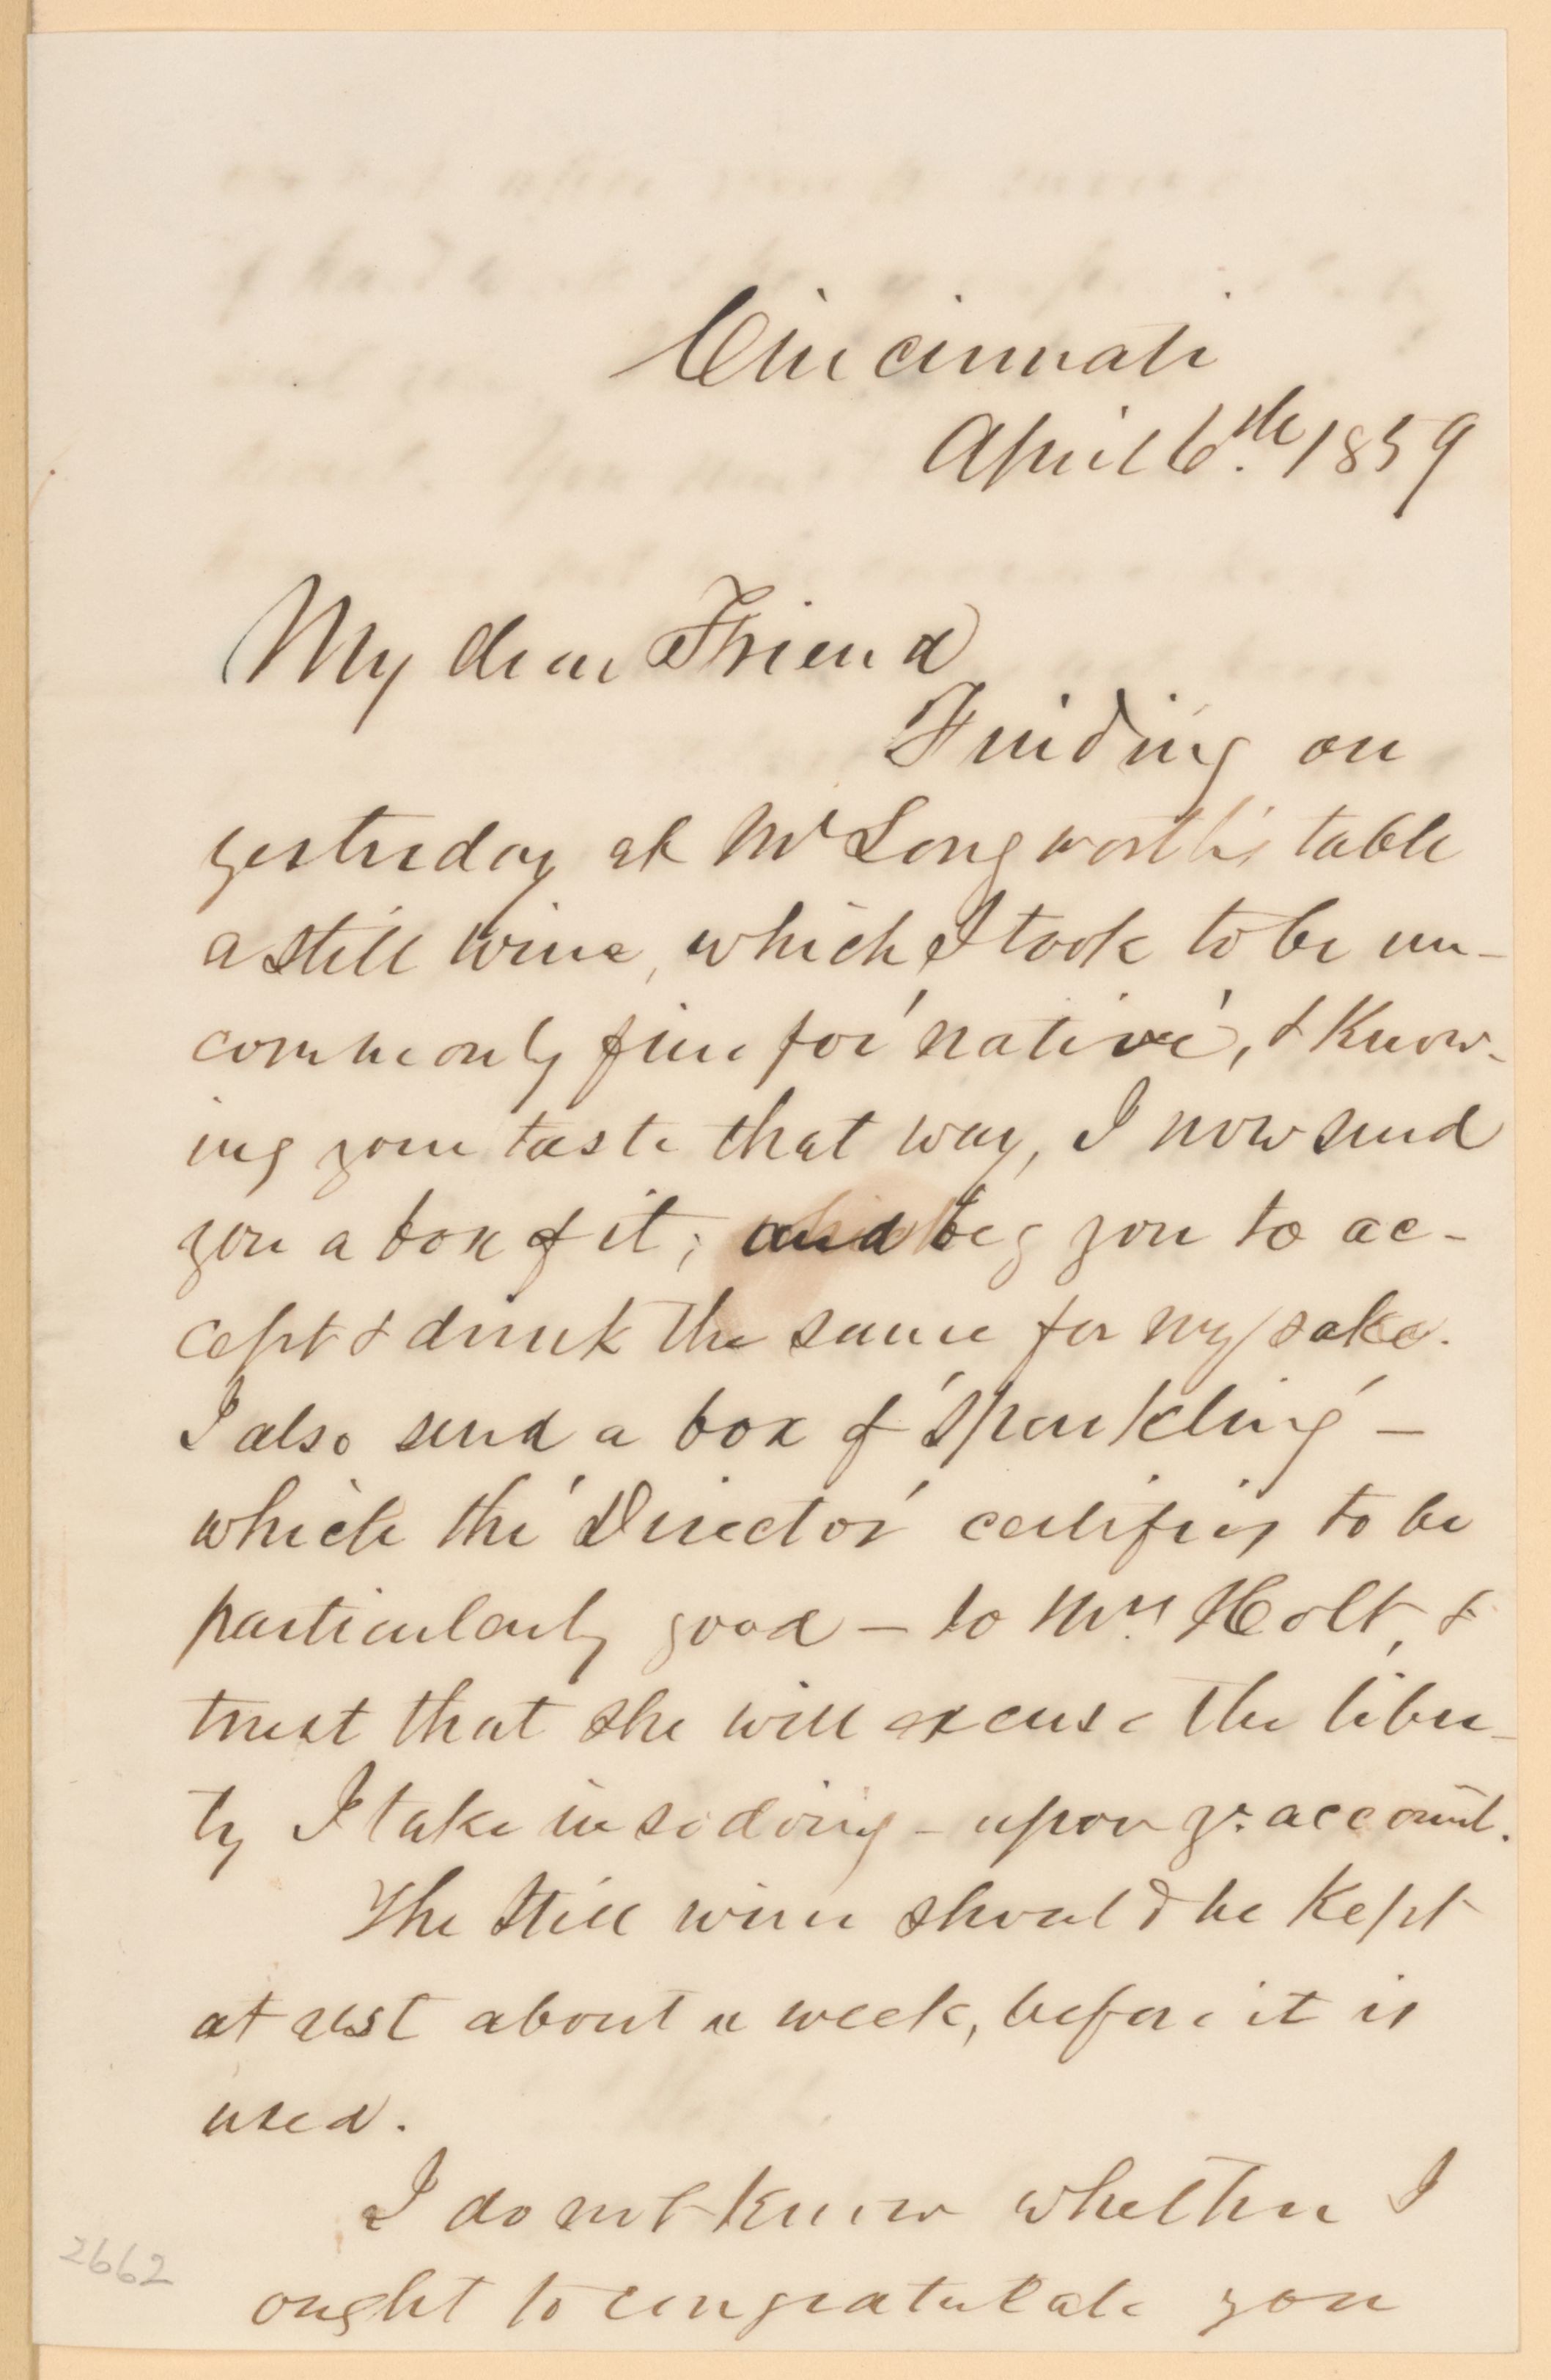 Cincinnati
April 6th. 1859
My dear Friend
Finding on
yesterday at Mr Longworth's table
a still wine, which I took to be un-
commonly fine for 'native', & know-
ing your taste that way, I now send
you a box of it; and beg you to ac-
cept & drink the same for my sake.
I also send a box of 'sparkling' —
which the 'Director' certifies to be
particularly good — to Mrs. Holt, &
trust that she will excuse the liber-
ty I take in so doing — upon yr. account.
The still wine should be kept
at rest about a week, before it is
used.
I do not know whether I
ought to congratulate you
2662